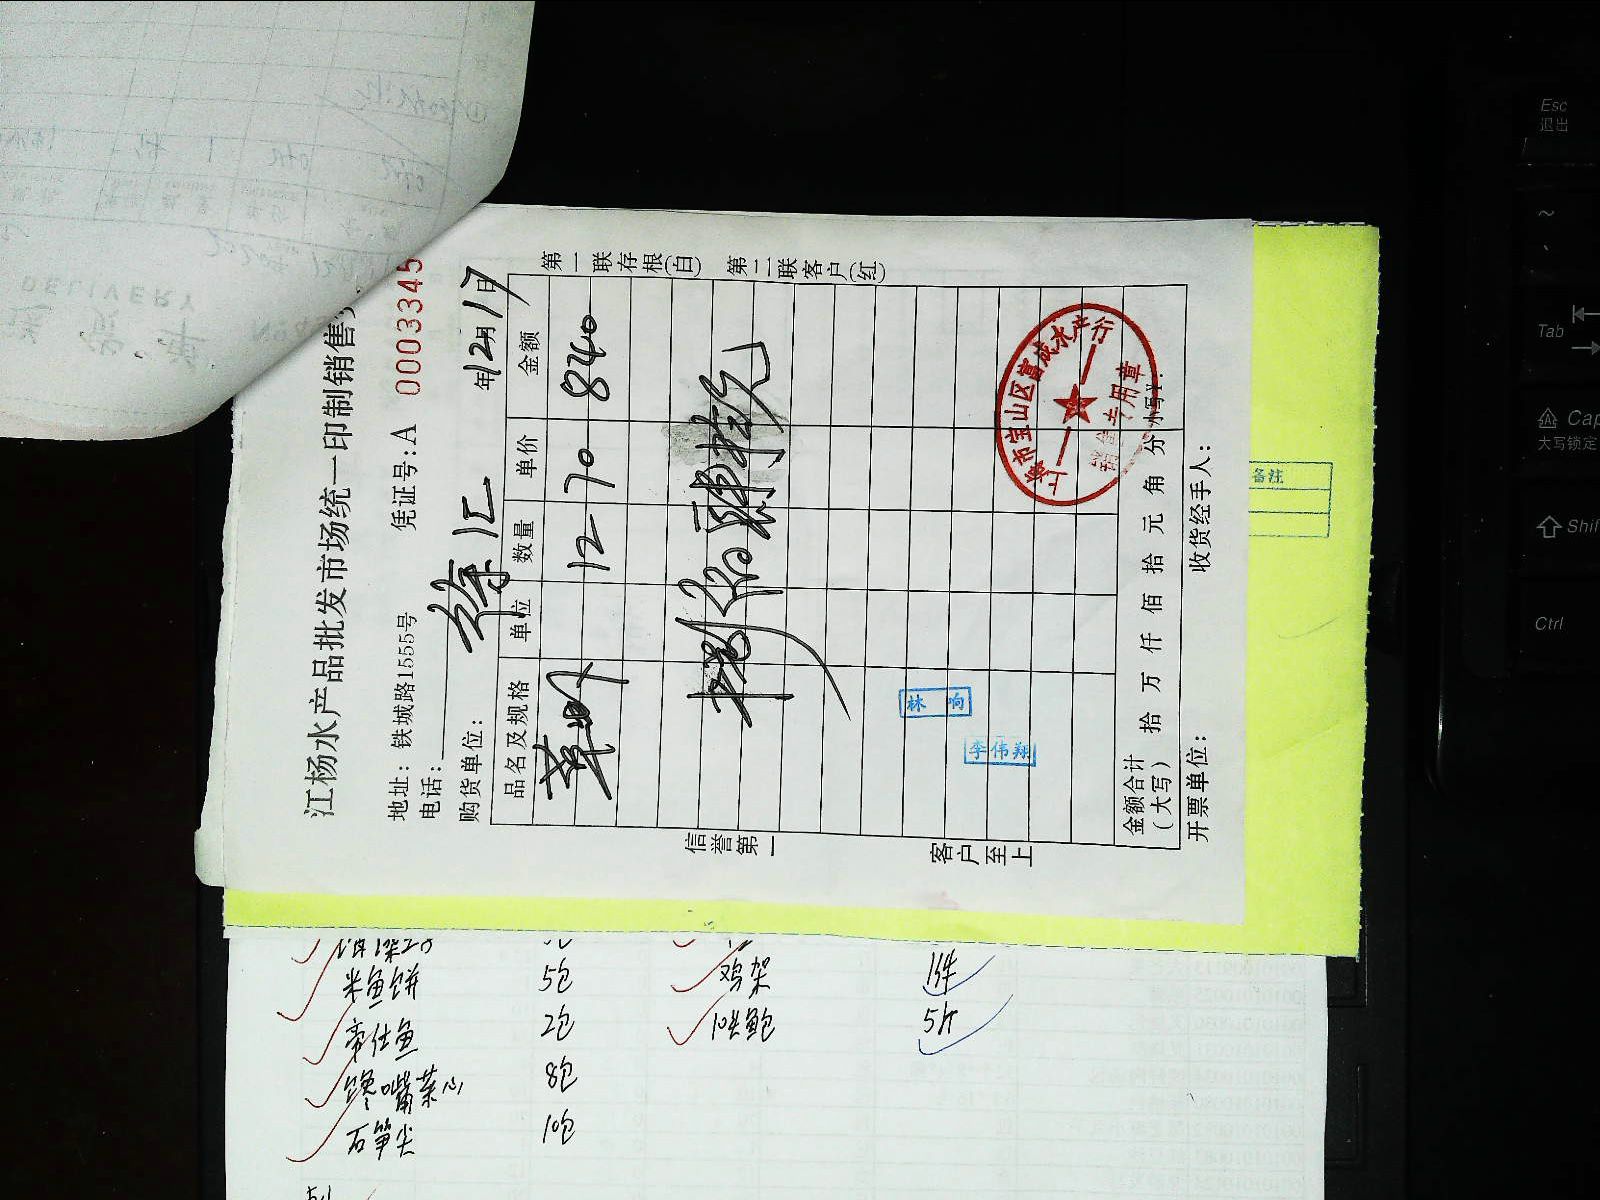 江杨水产品批发市场统一印制销售
地址：铁城路1555号 凭证号:A 0003345
电话:
购货单位: 徐汇 年12月17日
品名及规格 单位 数量 单价 金额
12 70 840
第一联存根(白) 第二联客户(红)
信誉第一
客户至上
上海市宝山区富成水产行
专用章
林 响
李伟翔
金额合计(大写) 拾 万 仟 佰 拾 元 角 分 小写¥:
开票单位: 收货经手人:
备注
米鱼饼 5包 鸡架 1件
帝仕鱼 2包 10头鲍 5斤
馋嘴菜心 8包
石笋尖 10包
Esc
退出
~
Tab
Cap
大写锁定
Shif
Ctrl
DELIVERY